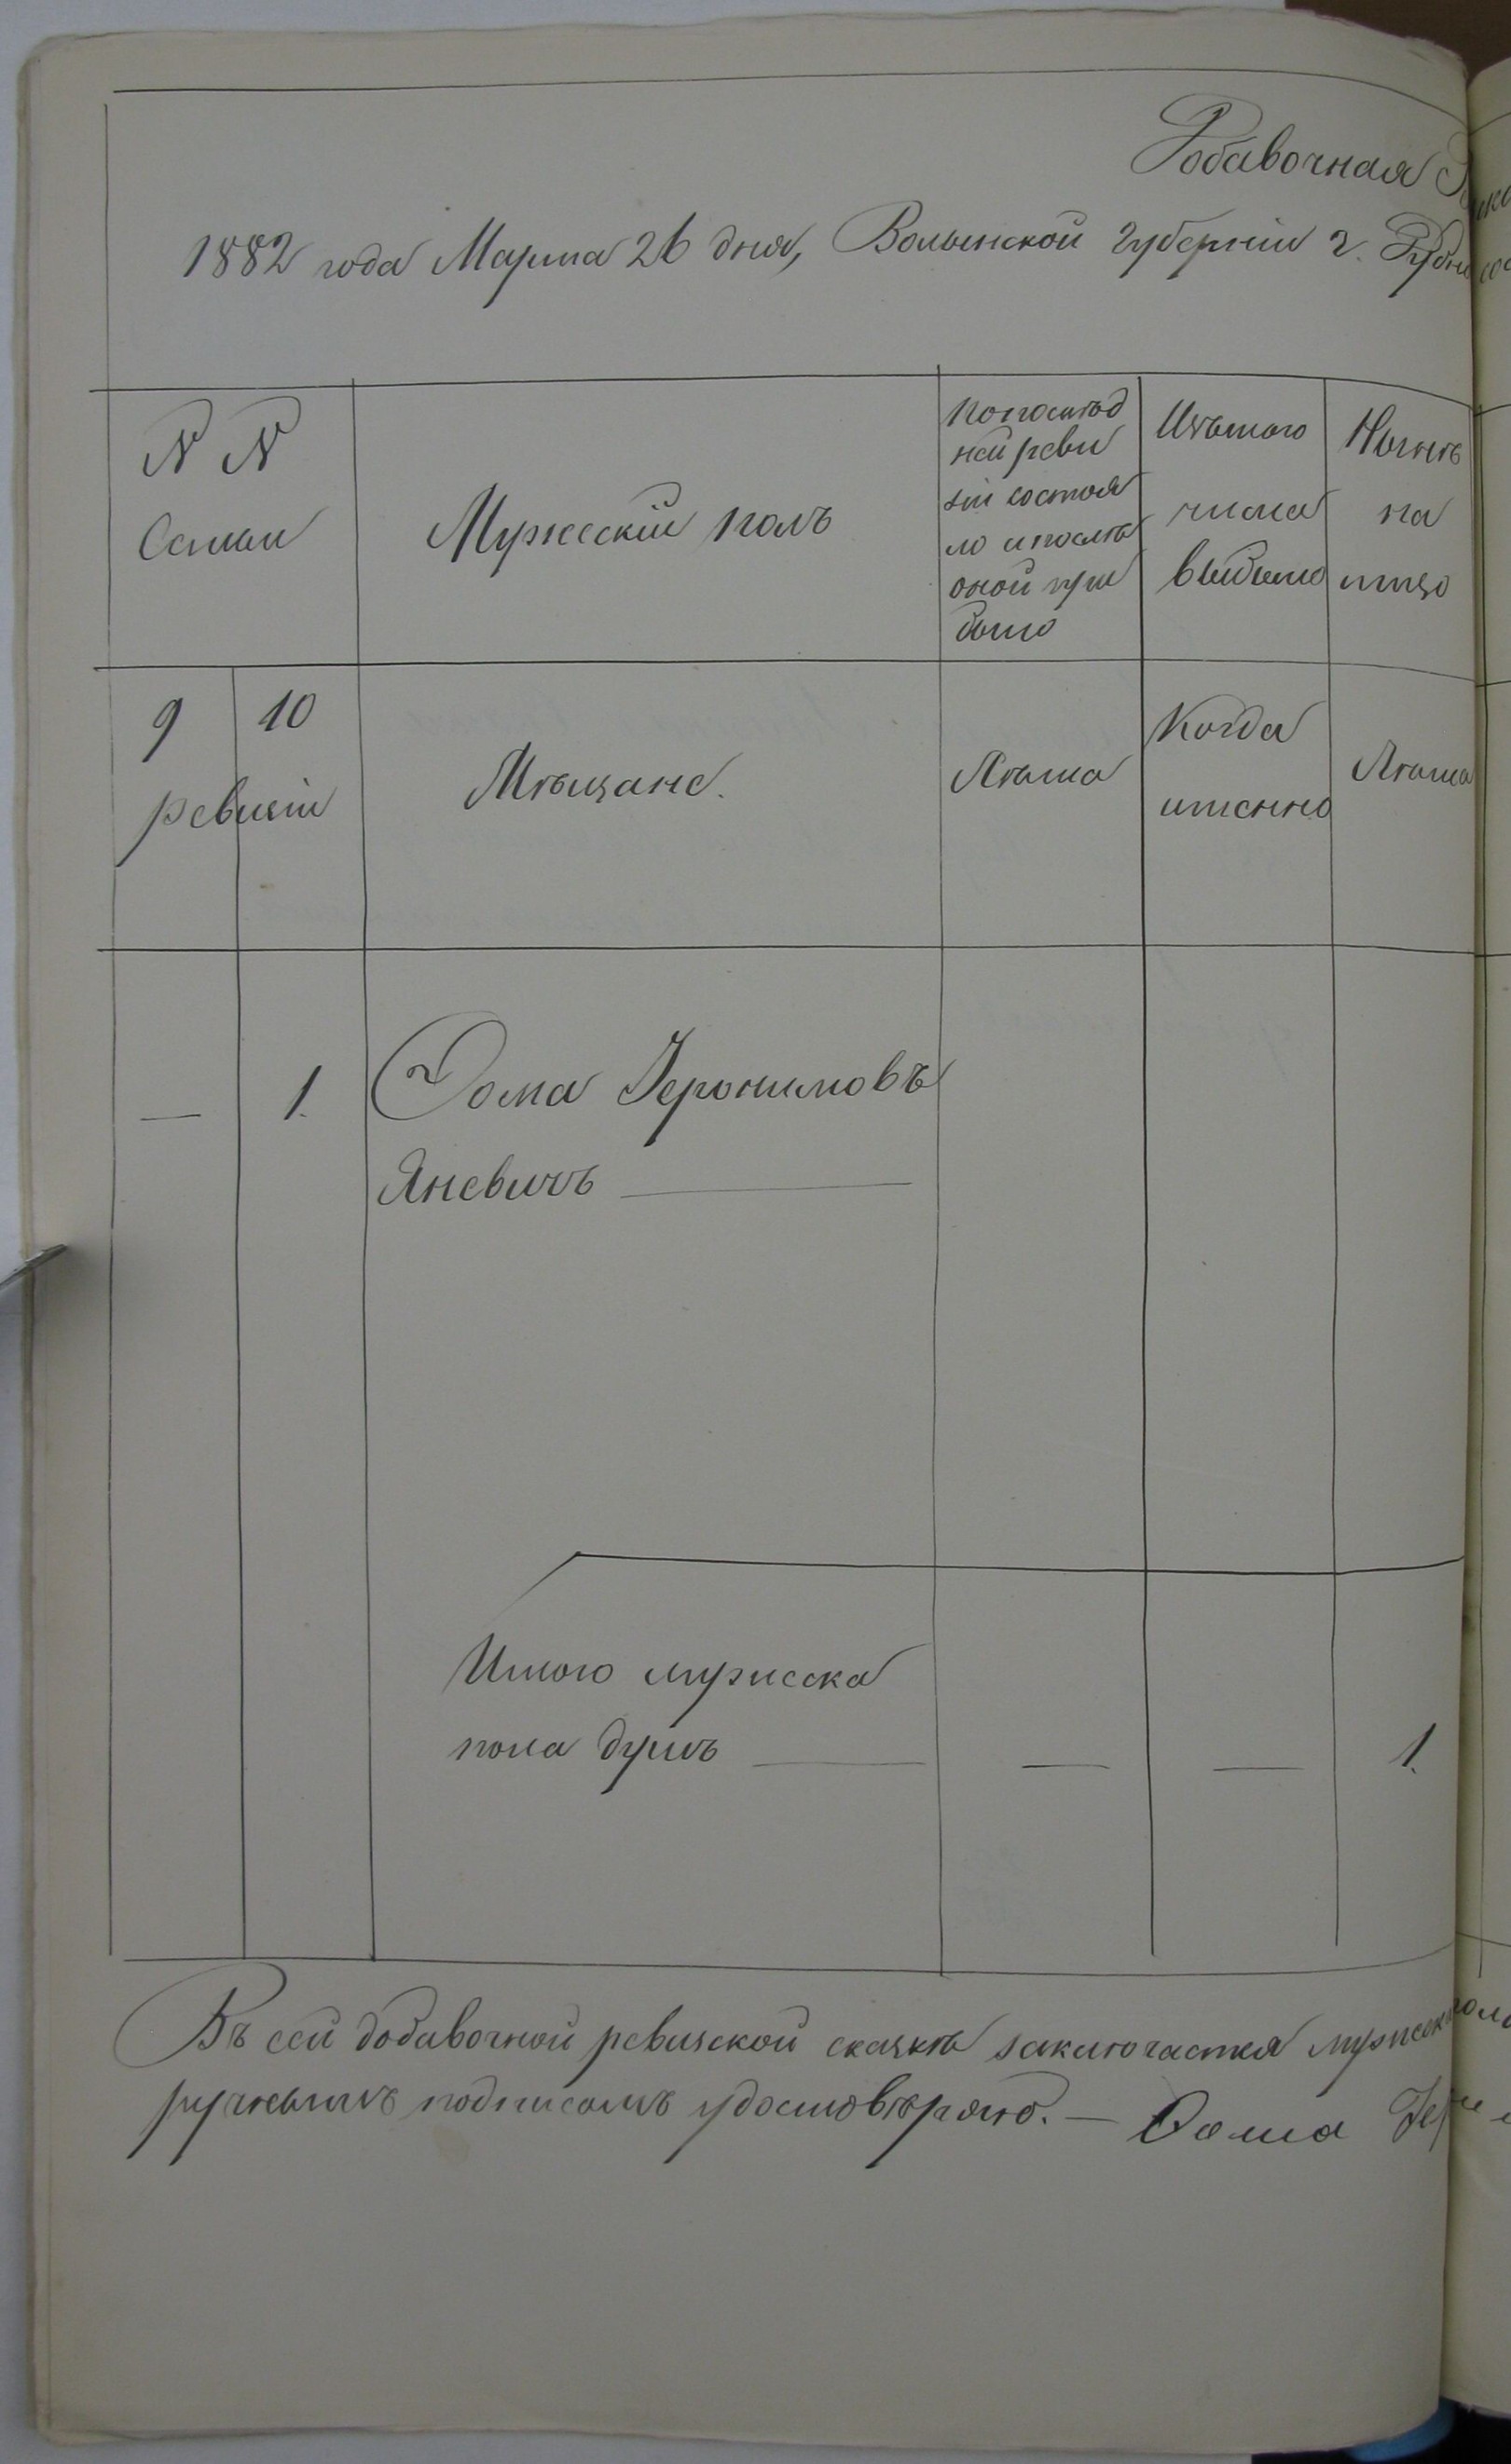 Добавочная
1882 года Марта 26 дня, Волынской губерніи г. Дубн
N N
Семьи
Мужескій полъ
По послѣд
ней реви
зіи состоя
ло и послѣ
оной при
было
Изъ того
числа
выбыло
Нынѣ
на
лицо
9 10
ревизіи
Мѣщане.
Лѣта
Когда
именно
Лѣта
— 1. Фома Іеронимовъ
Яневичъ —
Итого мужеска
пола душъ — — — 1.
Въ сей добавочной ревизской сказкѣ заключается мужеска
ручнымъ подписомъ удостовѣряю. — Фома Іер